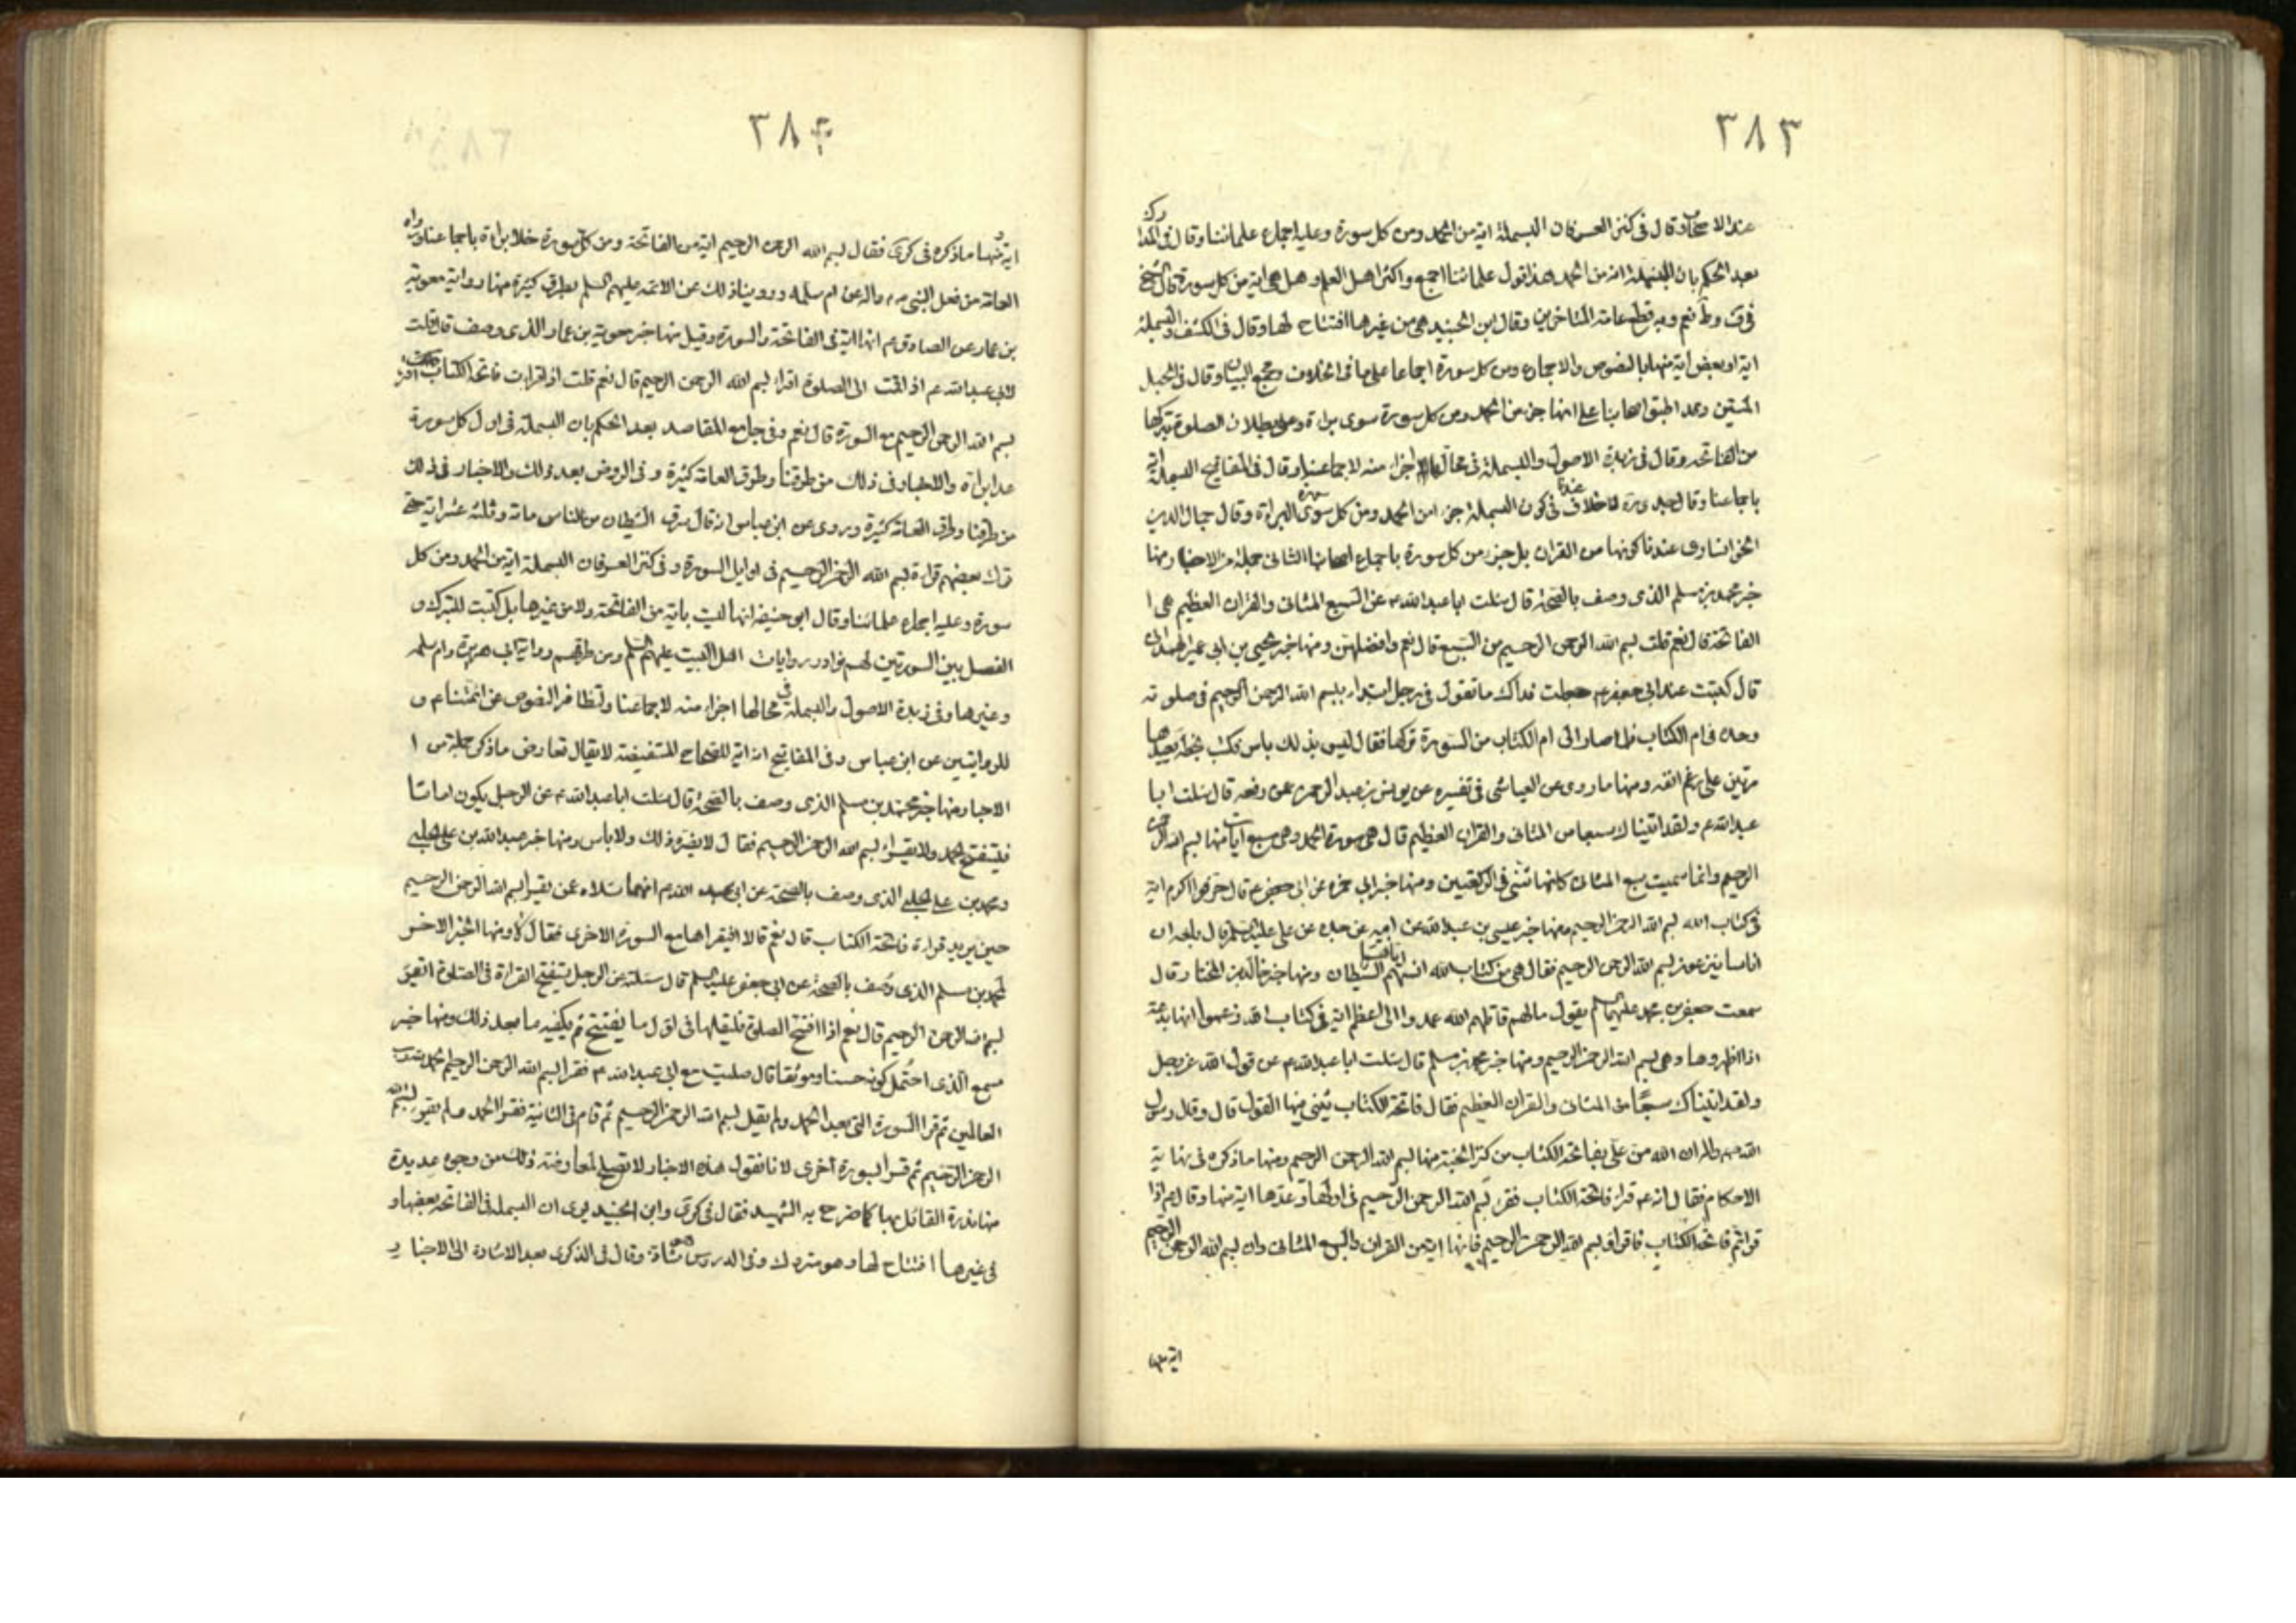 ٣٨٣
عند الاصحاب وقال في كنز العرفان البسملة اية من الحمد ومن كل سورة وعليه اجماع علمائنا وقال في المدارك
بعد الحكم بان البسملة اية من الحمد هذا قول علمائنا اجمع واكثر اهل العلم وهل هي اية من كل سورة قال الشيخ
في ف وط نعم وبه قطع عامة المتاخرين وقال ابن الجنيد هي من غيرها افتتاح لها وقال في الكشف والبسملة
اية او بعض اية منها بالنصوص والاجماع ومن كل سورة اجماعا على ما في الخلاف ومجمع البيان وقال في الحبل
المتين وقد اطبق اصحابنا على انها جزء من الحمد ومن كل سورة سوى براءة وعلى بطلان الصلوة بتركها
من الفاتحة وقال في زبدة الاصول والبسملة في محالها اجزاء منه لاجماعنا وقال في المفاتيح البسملة اية
باجماعنا وقال جدي ره لا خلاف عندنا في كون البسملة جزء من الحمد ومن كل سورة سوى البراءة وقال جمال الدين
الخوانساري عندنا كونها من القران بل جزء من كل سورة باجماع اصحابنا الثاني جملة من الاخبار منها
خبر محمد بن مسلم الذي وصف بالصحة قال سئلت ابا عبد الله ع عن السبع المثاني والقران العظيم هي ا
الفاتحة قال نعم قلت بسم الله الرحمن الرحيم من السبع قال نعم وافضلهن ومنها خبر يحيى بن ابي عمير الهمداني
قال كتبت عند ابي جعفر ع جعلت فداك ما تقول في رجل ابتدا ببسم الله الرحمن الرحيم في صلوته
وحده في ام الكتاب فلما صار الى ام الكتاب من السورة تركها فقال ليس بذلك باس فكتب بخطه يعيدها
مرتين على رغم انفه ومنها ما روي عن العياشي في تفسيره عن يونس بن عبد الرحمن عمن رفعه قال سئلت ابا
عبد الله ع ولقد اتيناك سبعا من المثاني والقران العظيم قال هي سورة الحمد وهي سبع ايات منها بسم الله الرحمن
الرحيم وانما سميت سبع المثاني لانها تثنى في الركعتين ومنها خبر ابي حمزة عن ابي جعفر ع قال سرقوا اكرم اية
في كتاب الله بسم الله الرحمن الرحيم ومنها خبر عيسى بن عبد الله عن ابيه عن جده عن علي عليه السلم قال بلغه ان
اناسا ينزعون بسم الله الرحمن الرحيم فقال هي من كتاب الله انساهم اياها الشيطان ومنها خبر خالد بن المختار قال
سمعت جعفر بن محمد عليهما السلم يقول مالهم قاتلهم الله عمدوا الى اعظم اية في كتاب الله فزعموا انها بدعة
اذا اظهروها وهي بسم الله الرحمن الرحيم ومنها خبر محمد بن مسلم قال سئلت ابا عبد الله ع عن قول الله عز وجل
ولقد اتيناك سبعا من المثاني والقران العظيم فقال فاتحة الكتاب يثنى فيها القول قال وقال رسول
الله ص واله ان الله من علي بفاتحة الكتاب من كنز الجنة منها بسم الله الرحمن الرحيم ومنها ما ذكره في نهاية
الاحكام فقال انه ع قراء فاتحة الكتاب فقرء بسم الله الرحمن الرحيم في اولها وعدها اية منها وقال ع اذا
قراتم فاتحة الكتاب فاقراؤ بسم الله الرحمن الرحيم فانها اية من القران والسبع المثاني وان بسم الله الرحمن الرحيم
اية منها
٣٨٤
اية منها ومنها ما ذكره في كرى فقال بسم الله الرحمن الرحيم اية من الفاتحة ومن كل سورة خلا براءة باجماعنا ورواه
العامة من فعل النبي ص واله عن ام سلمه وروينا ذلك عن الائمه عليهم السلم بطرق كثيرة منها رواية معوية
بن عمار عن الصادق ع انها اية في الفاتحة والسورة وقيل منها خبر معوية بن عمار الذي وصف قال قلت
لابي عبد الله ع اذا قمت الى الصلوة اقراء بسم الله الرحمن الرحيم قال نعم قلت اذا قرات فاتحة الكتاب اقرء
بسم الله الرحمن الرحيم مع السورة قال نعم وفي جامع المقاصد بعد الحكم بان البسملة في اول كل سورة
عدا براءة والاخبار في ذلك من طرقنا وطرق العامة كثيرة وفي الروض بعد ذلك والاخبار في ذلك
من طرقنا وطرق العامة كثيرة وروي عن ابن عباس انه قال سرق الشيطان من الناس مائة وثلثة عشر اية حتى
ترك بعضهم قراءة بسم الله الرحمن الرحيم في اوايل السورة وفي كنز العرفان البسملة اية من الحمد ومن كل
سورة وعليه اجماع علمائنا وقال ابو حنيفة انها ليست باية من الفاتحة ولا من غيرها بل كتبت للتبرك و
الفصل بين السورتين لهم نوادر روايات اهل البيت عليهم السلم ومن طرقهم رواية ابي هريرة وام سلمه
وغيرها وفي زبدة الاصول والبسملة في محالها اجزاء منه لاجماعنا وتظافر النصوص عن ائمتنا ع و
للروايتين عن ابن عباس وفي المفاتيح انه اية للصحاح المستفيضة لا يقال تعارض ما ذكر جملة من ا
الاخبار منها خبر محمد بن مسلم الذي وصف بالصحة قال سئلت ابا عبد الله ع عن الرجل يكون اماما
فيستفتح بالحمد ولا يقراء بسم الله الرحمن الرحيم فقال لا يضره ذلك ولا باس ومنها خبر عبد الله بن علي الحلبي
ومحمد بن علي الحلبي الذي وصف بالصحة عن ابي عبد الله ع انهما سئلاه عمن يقرا بسم الله الرحمن الرحيم
حين يريد قراءة فاتحة الكتاب قال نعم قالا افيقراها مع السورة الاخرى فقال لا ومنها الخبر الاخر
لمحمد بن مسلم الذي وصف بالصحة عن ابي جعفر عليه السلم قال سئلته عن الرجل يستفتح القراءة في الصلوة اتقرء
بسم الله الرحمن الرحيم قال نعم اذا افتتح الصلوة فليقلها في اول ما يفتتح ثم يكفيه ما بعد ذلك ومنها خبر
مسمع الذي احتمل كونه حسنا وموثقا قال صليت مع ابي عبد الله ع فقرا بسم الله الرحمن الرحيم الحمد لله رب
العالمين ثم قرا السورة التي بعد الحمد ولم يقل بسم الله الرحمن الرحيم ثم قام في الثانية فقرا الحمد ولم يقرء بسم الله
الرحمن الرحيم ثم قرا بسورة اخرى لانا نقول هذه الاخبار لا تصلح لمعارضته ذلك من وجوه عديدة
منها ندرة القائل بها كما صرح به الشهيد فقال في كرى وابن الجنيد يرى ان البسملة في الفاتحة بعضها و
في غيرها افتتاح لها وهو متروك وفي الدروس شاذ وقال في الذكرى بعد الاشارة الى الاخبار